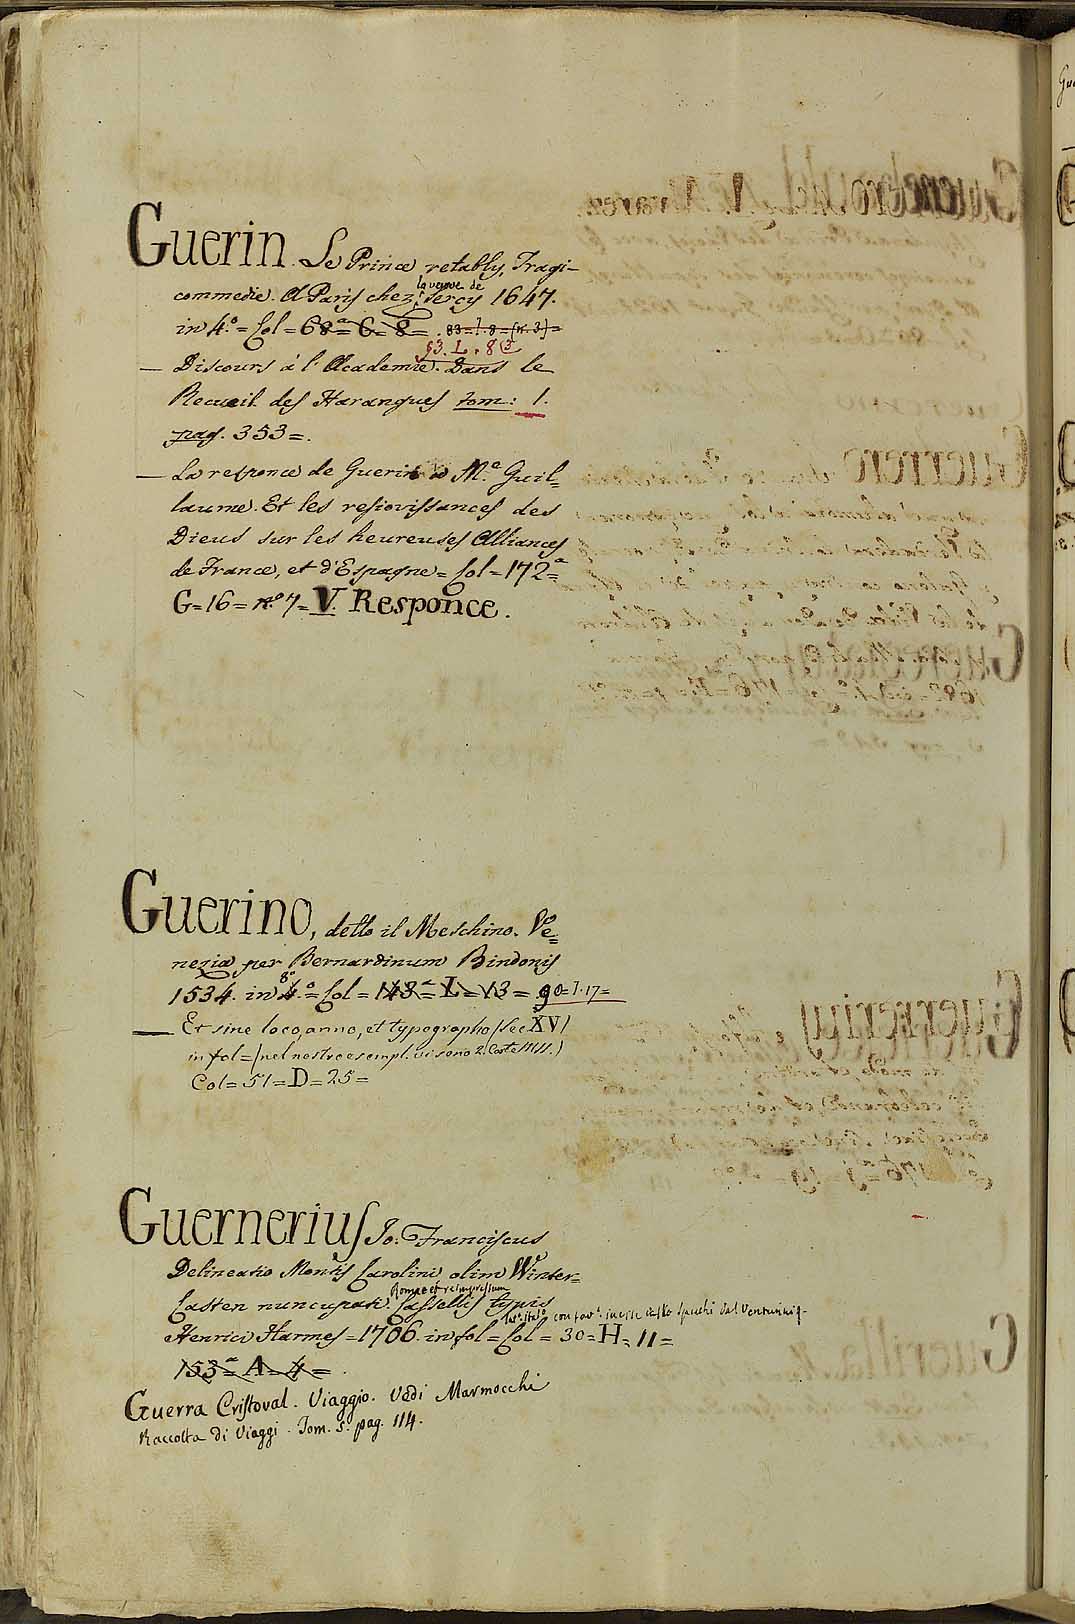 Guerin. Le Prince retably, Tragi-
commedie. A Paris chez la veuve de Sercy 1647.
in 4.º = Col = 68ª = G = 8 = . 83 = I. 8 = (n. 3) =
63. L. 8 (3
— Discours à l'Academie. Dans le
Recueil des Harangues tom: 1.
pag. 353 =.
— La responce de Guerin a M.e Guil=
laume. Et les resiovissances des
Dieus sur les heureuses Alliances
de France, et d'Espagne = Col = 172ª =
G = 16 = n.º 7 = V. Responce.
Guerino, detto il Meschino. Ve=
nezia per Bernardinum Bindonis
1534. in 4.º 8º = Col = 148ª = L = 13 = 90 = I. 17 =
— Et sine loco, anno, et typographo (Sec. XV)
in fol = (nel nostro esempl. vi sono 2. Carte MSS.)
Col = 51 = D = 25 =
Guernerius Jo: Franciscus
Delineatio Montis Carolini olim Winter=
Casten nuncupati. Romae et reimpressum Cassellis typis
Henrici Harmes = 1706. in fol = Col = 30 = H = 11 =
153ª = A = 4 = .
Guerra Cristoval. Viaggio. Vedi Marmocchi
Raccolta di Viaggi. Tom. 5. pag. 114.